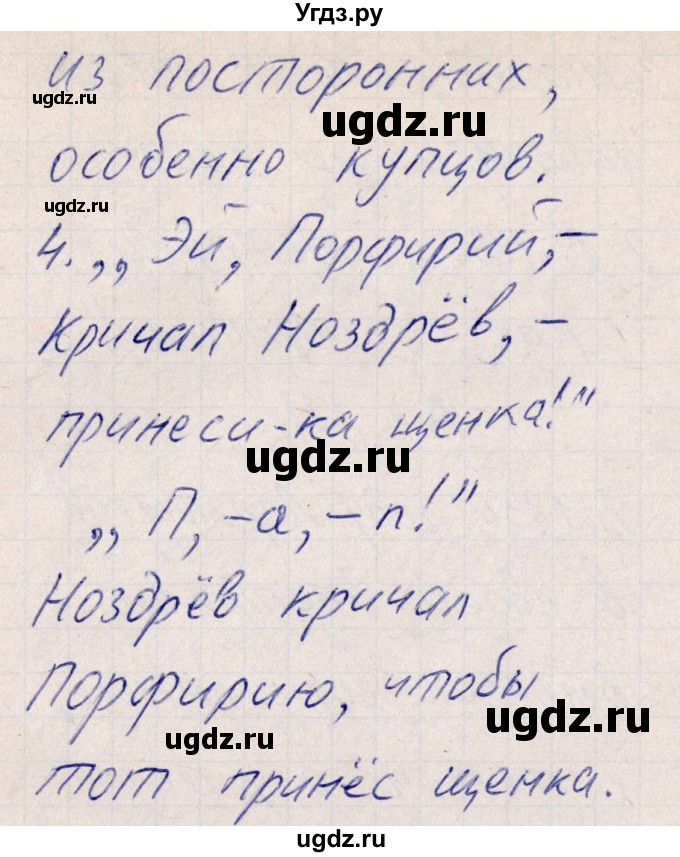 Угдз.ру
из посторонних,
ugdz.ru
ugdz.ru
особенно купцов.
ugdz.ru
4. „Эй, Порфирий, –
кричал Ноздрёв, –
принеси-ка щенка!"
ugdz.ru
„П, – а, – п!"
Ноздрёв кричал
Порфирию, чтобы
ugdz.ru
ugdz.ru
тот принёс щенка.
ugdz.ru